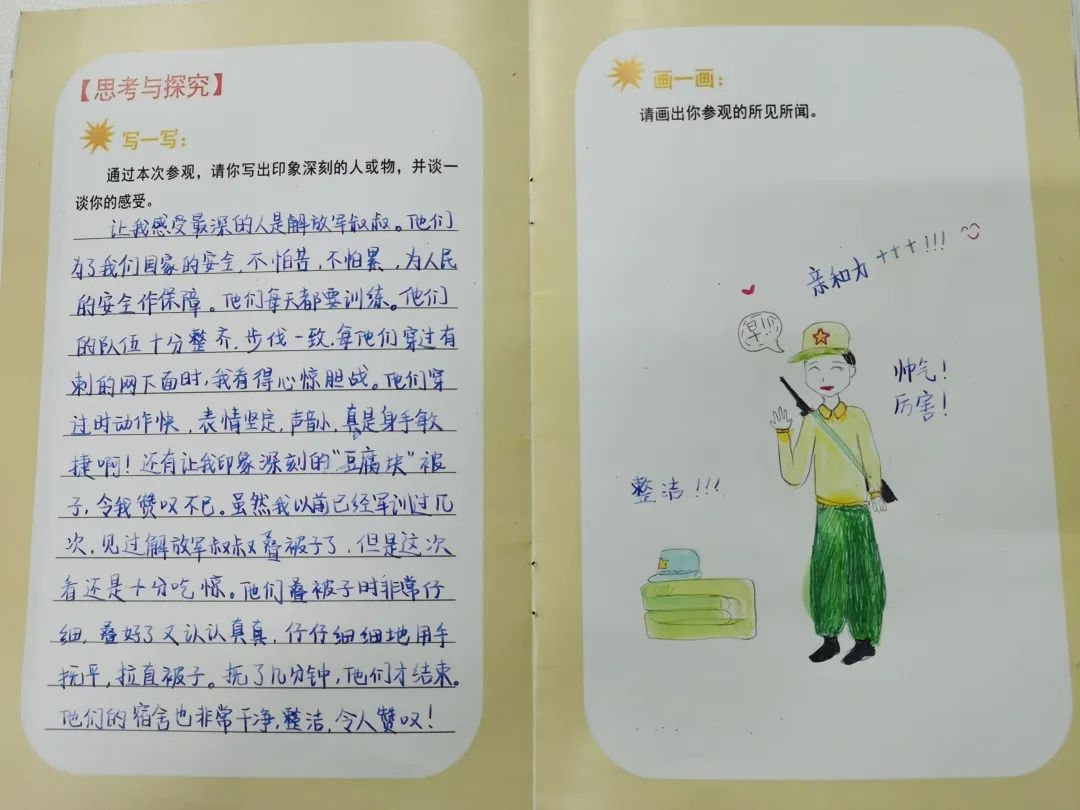 【思考与探究】
写一写：
通过本次参观，请你写出印象深刻的人或物，并谈一
谈你的感受。
让我感受最深的人是解放军叔叔。他们
为了我们国家的安全，不怕苦，不怕累，为人民
的安全作保障。他们每天都要训练。他们
的队伍十分整齐，步伐一致，每他们穿过有
刺的网下面时，我看得心惊胆战。他们穿
过时动作快，表情坚定，声音小，真是身手敏
捷啊！还有让我印象深刻的“豆腐块”被
子，令我赞叹不已。虽然我以前已经军训过几
次，见过解放军叔叔叠被子了，但是这次
看还是十分吃惊。他们叠被子时非常仔
细，叠好了又认认真真，仔仔细细地用手
抚平，拉直被子。抚了几分钟，他们才结束。
他们的宿舍也非常干净，整洁，令人赞叹！
画一画：
请画出你参观的所见所闻。
亲和力+++!!!
早!!
帅气！
厉害！
整洁!!!